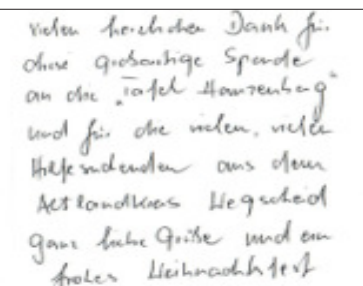 vielen herzlichen Dank für
diese großartige Spende
an die „Tafel Hauzenberg"
und für die vielen, vielen
Hilfesuchenden aus dem
Altlandkreis Wegscheid
ganz liebe Grüße und ein
frohes Weihnachtsfest